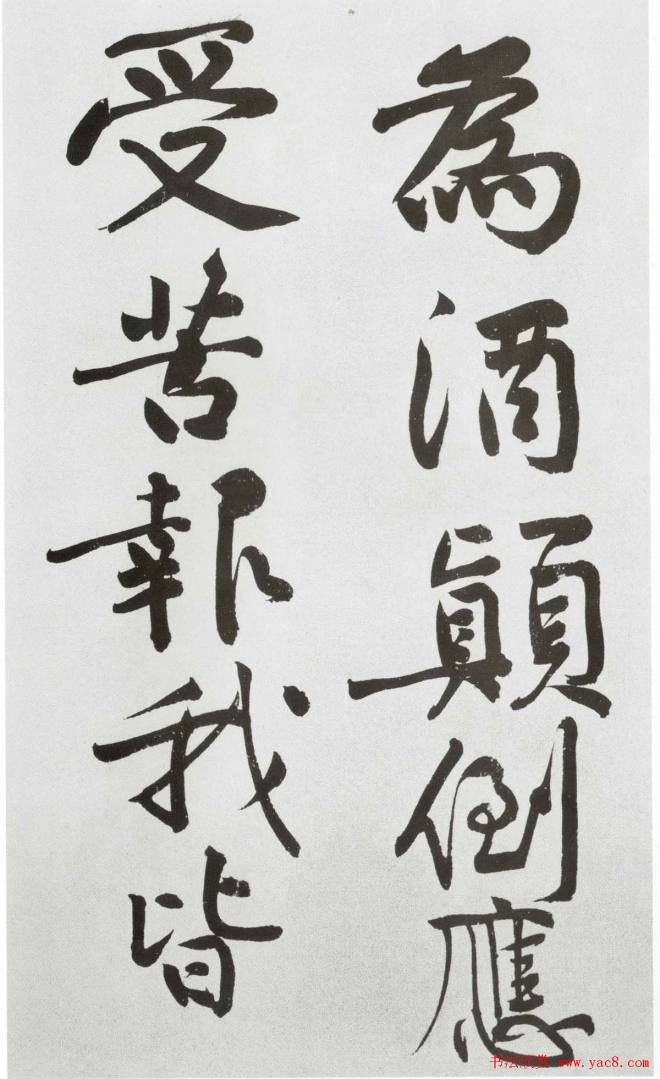 為酒顛倒應
受苦報我皆
书法欣赏 www.yac8.com